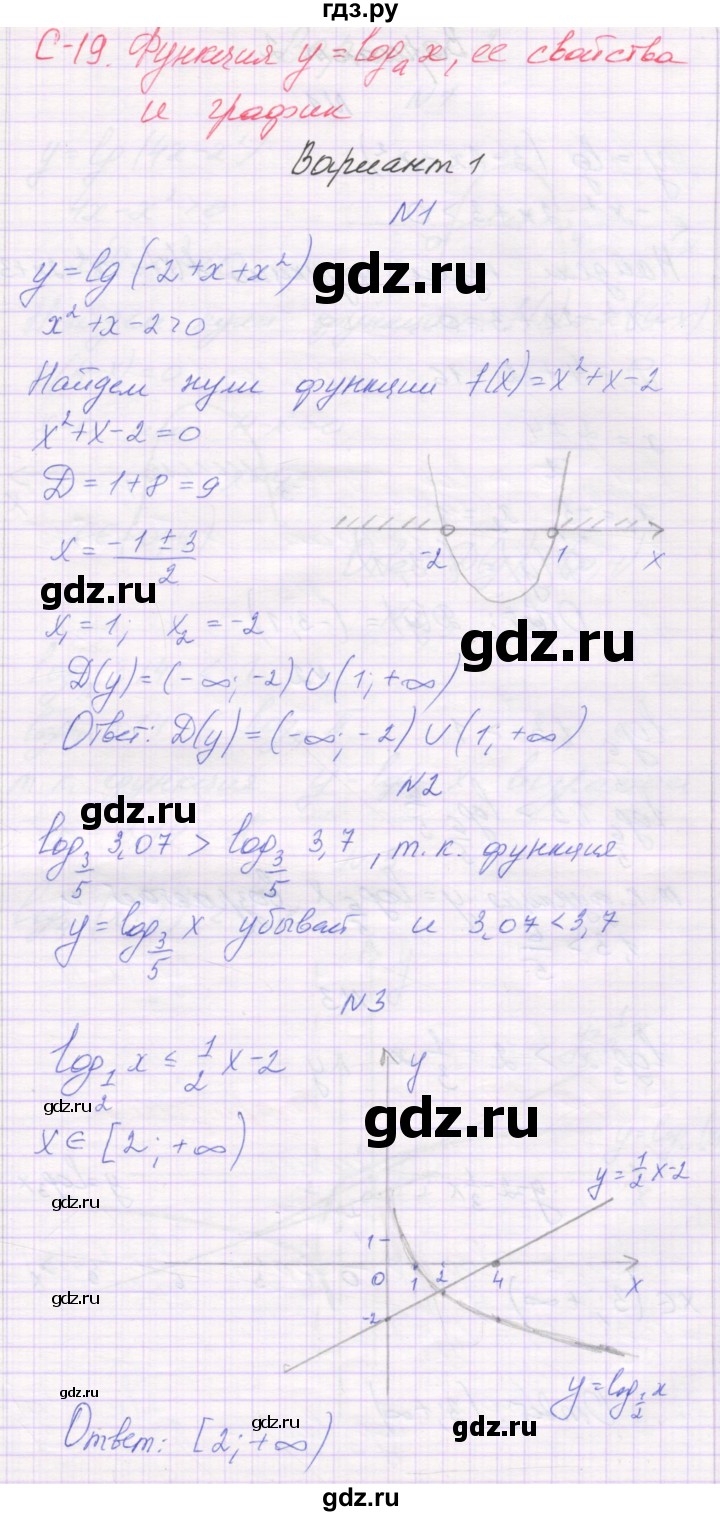 гдз.ру
С-19. Функция y = log_a x, ее свойства
и график
Вариант 1
N1
y = lg(-2+x+x²)
gdz.ru
x²+x-2>0
Найдем нули функции f(x)=x²+x-2
x²+x-2=0
D=1+8=9
x = (-1±3)/2
-2 1 x
gdz.ru
x₁=1; x₂=-2
gdz.ru
D(y)=(-∞;-2)∪(1;+∞)
Ответ: D(y)=(-∞;-2)∪(1;+∞)
N2
gdz.ru
log_3/5 3,07 > log_3/5 3,7, т.к. функция
y=log_3/5 x убывает и 3,07<3,7
N3
log_1/2 x ≤ 1/2 x-2
y
gdz.ru
gdz.ru
x∈[2;+∞)
y=1/2 x-2
gdz.ru
1
0 1 2 4 x
gdz.ru
-2
y=log_1/2 x
gdz.ru
Ответ: [2;+∞)
gdz.ru
gdz.ru
gdz.ru